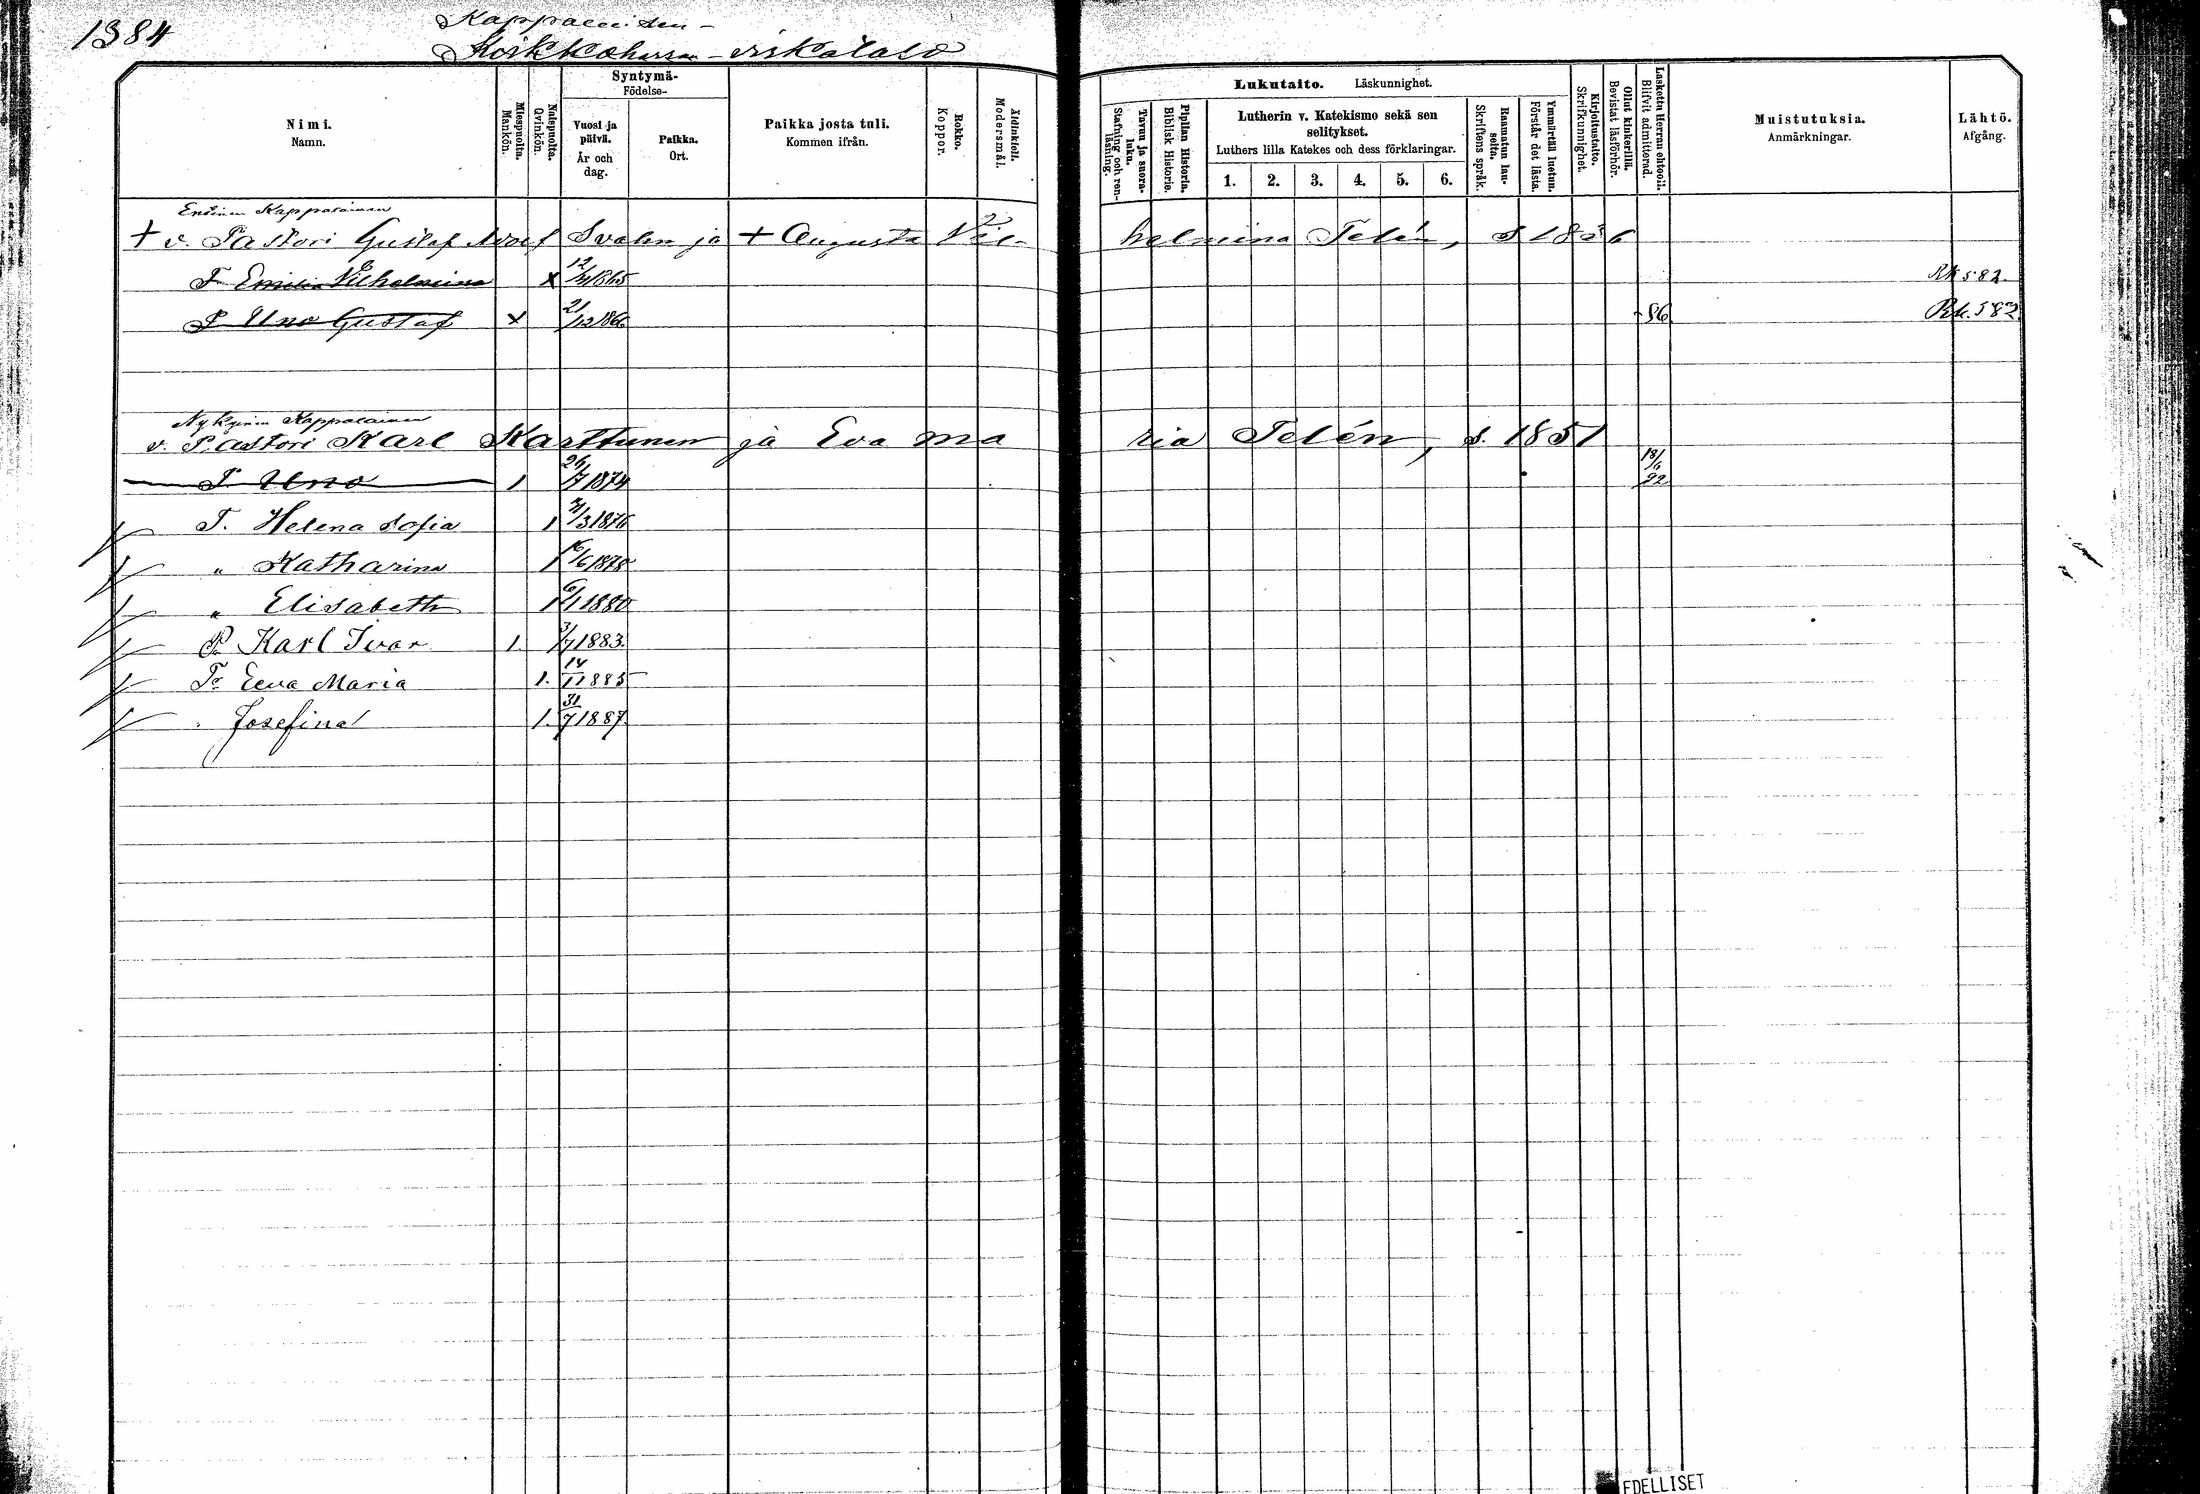 1384
Kappalaisen-
Kirkkoherran-virkatalo
Nimi.
Namn.
Miespuolta.
Mankön.
Naispuolta.
Qvinkön.
Syntymä-
Födelse-
Vuosi ja päivä.
År och dag.
Paikka.
Ort.
Paikka josta tuli.
Kommen ifrån.
Rokko.
Koppor.
Äidinkieli.
Modersmål.
Lukutaito. Läskunnighet.
Tavuu ja suora-luku.
Stafning och ren-läsning.
Piplian Historia.
Biblisk Historie.
Lutherin v. Katekismo sekä sen selitykset.
Luthers lilla Katekes och dess förklaringar.
1. 2. 3. 4. 5. 6.
Raamatun lau-seita.
Skriftens språk.
Ymmärtää luetun.
Förstår det lästa.
Kirjoitustaito.
Skrifkunnighet.
Ollut kinkerillä.
Bevistat läsförhör.
Laskettu Herran ehtool.
Blifvit admitterad.
Muistutuksia.
Anmärkningar.
Lähtö.
Afgång.
Entinen Kappalainen
+ v. Pastori Gustaf Adolf Svahn ja + Augusta Vil-helmina Telén, S 1836
T Emilia Vilhelmina x 12/ 1865 Rk 582
P Uno Gustaf x 21/12 1866 86 Rk. 582
Nykyinen Kappalainen
v. Pastori Karl Karttunen ja Eva Maria Telén, s. 1851
P Uno 1 26/7 1874 18/6 92
T. Helena Sofia 1 /3 1876
" Katharina 1 16/6 1878
" Elisabeth 1 6/1 1880
P. Karl Ivar 1. 3/7 1883.
T. Eeva Maria 1. 14/11 1885
" Josefina 1. 31/7 1887
EDELLISET